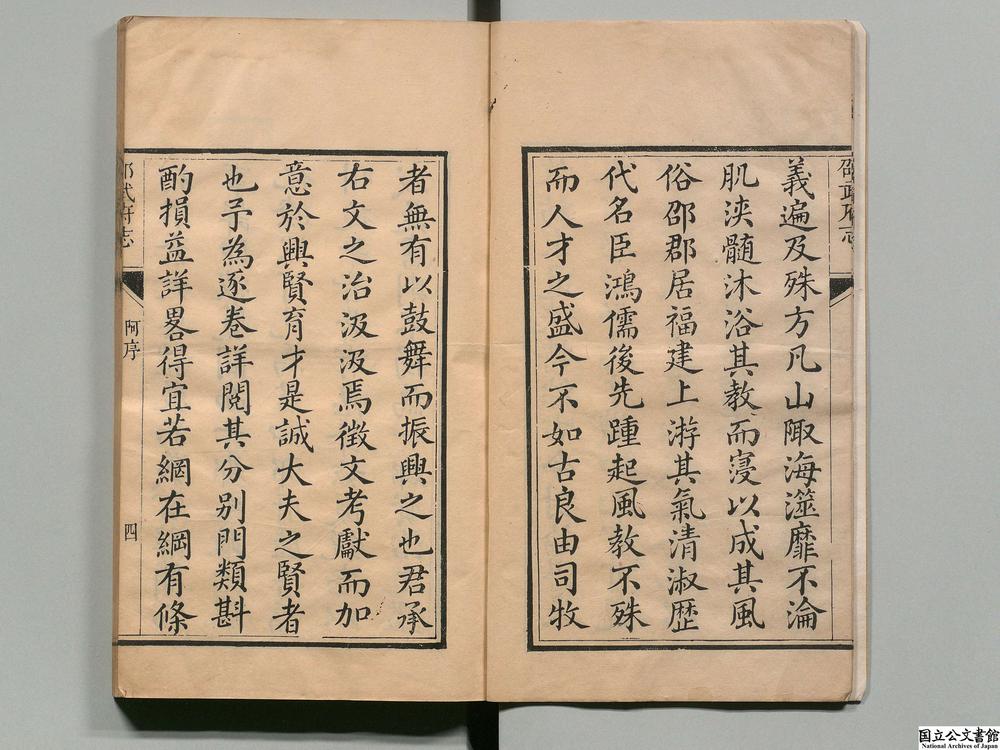 邵武府志
義遍及殊方凡山陬海澨靡不淪
肌浹髓沐浴其教而寖以成其風
俗邵郡居福建上游其氣清淑歷
代名臣鴻儒後先踵起風教不殊
而人才之盛今不如古良由司牧
者無有以鼓舞而振興之也君承
右文之治汲汲焉徵文考獻而加
意於興賢育才是誠大夫之賢者
也予為逐卷詳閱其分别門類斟
酌損益詳畧得宜若網在綱有條
邵武府志
阿序
四
国立公文書館
National Archives of Japan